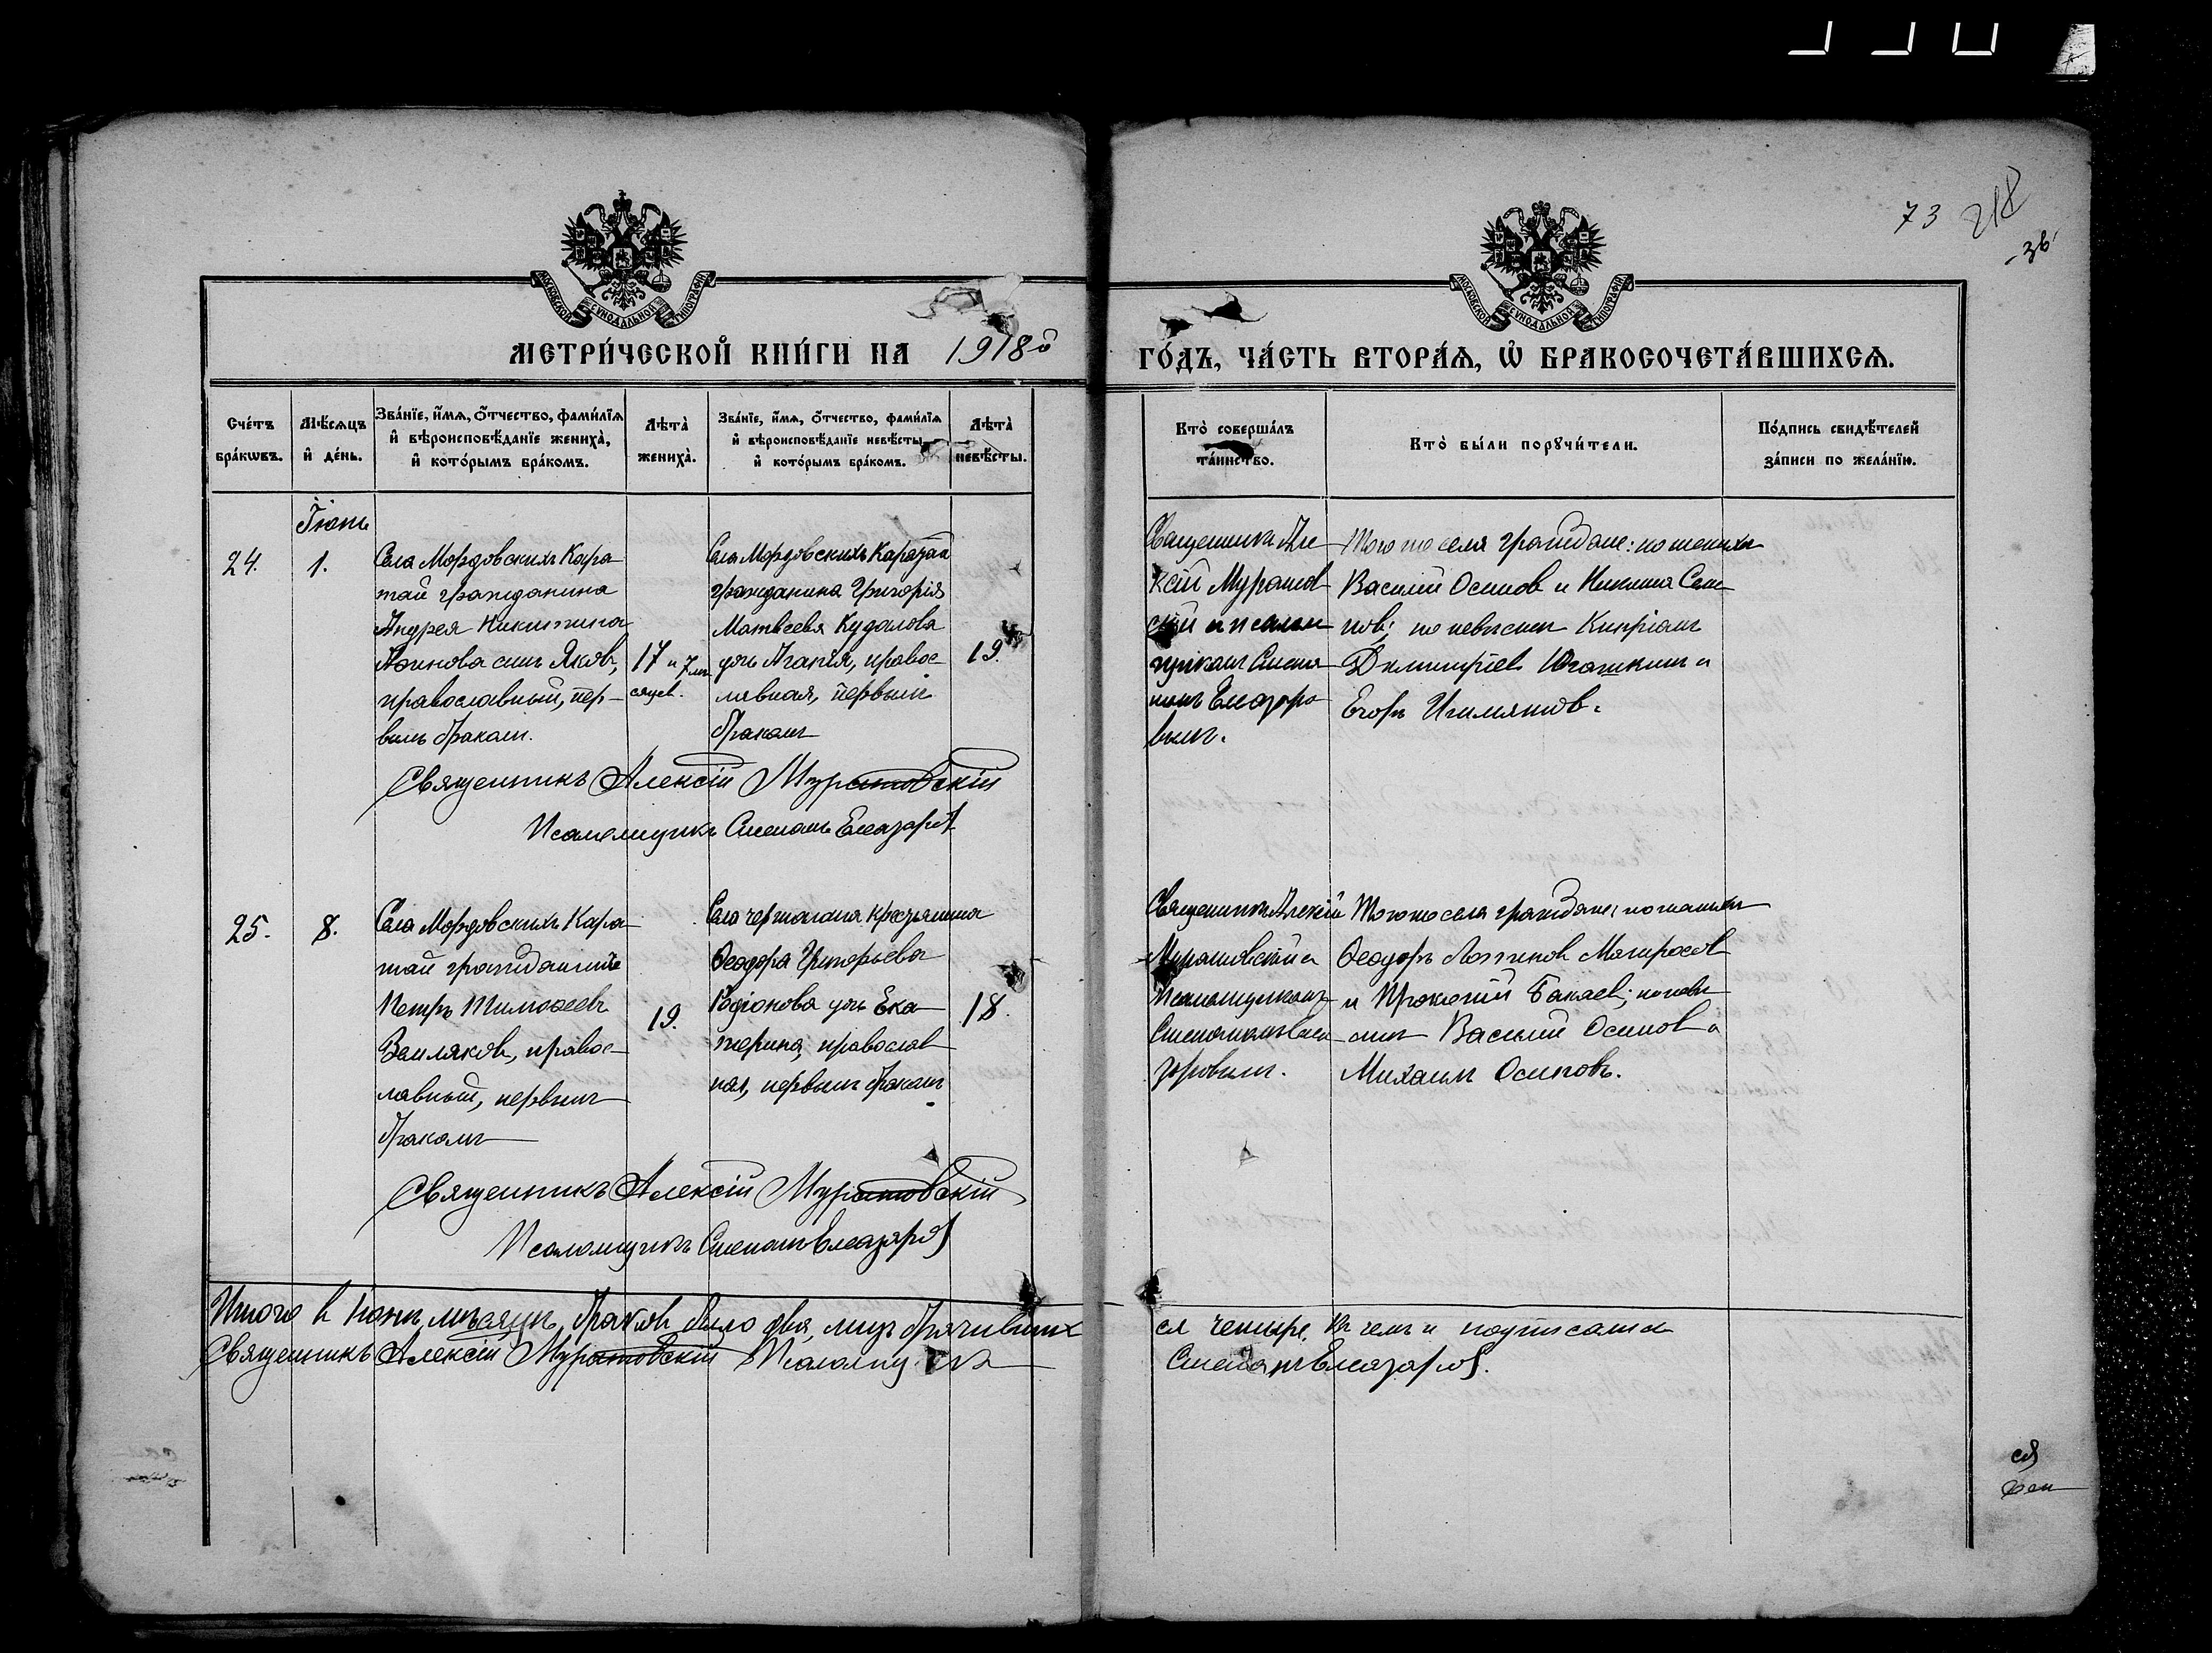 73 218
МОСКОВСКОЙ СѴНОДАЛЬНОЙ ТИПОГРАФІИ
МОСКОВСКОЙ СѴНОДАЛЬНОЙ ТИПОГРАФІИ
МЕТРИ́ЧЕСКОЙ КНИ́ГИ НА 1918й
ГО́ДЪ, ЧА́СТЬ ВТОРА́Ѧ, Ѡ҆ БРАКОСОЧЕТА́ВШИХСѦ.
Сче́тъ бра́кѡвъ.
Мѣ́сѧцъ и҆ де́нь.
Зва́нїе, и҆́мѧ, ѻ҆́тчество, фами́лїѧ
и҆ вѣроисповѣ́данїе жениха̀,
и҆ кото́рымъ бра́комъ.
Лѣ́та̀ жениха̀.
Зва́нїе, и҆́мѧ, ѻ҆́тчество, фами́лїѧ
и҆ вѣроисповѣ́данїе невѣ́сты,
и҆ кото́рымъ бра́комъ.
Лѣ́та̀ невѣ́сты.
Кто̀ соверша́лъ
та́инство.
Кто̀ бы́ли порꙋчи́тели.
По́дпись свидѣ́телей
за́писи по жела́нїю.
Іюнь
24.
1.
Села Мордовскихъ Кара-
тай гражданина
Андрея Никитина
сынъ Яковъ,
православный, пер-
вымъ бракомъ.
17 и 7 мѣ-
сяцев.
Села Мордовскихъ Каратай
гражданина Григорія
Матвѣева Кудалова
дочь Агапія, правос-
лавная, первымъ
бракомъ
19.
Священникъ Але-
ксій Муратов-
скій и псалом-
щикомъ Степа-
номъ Елеазаро-
вымъ.
Того же села граждане: по женихѣ
Василій Осиповъ и Никита Семе-
новъ; по невѣстѣ Кипріанъ
Димитріевъ Югашкинъ и
Егоръ
Священникъ Алексій Муратовскій
Псаломщикъ Степанъ Елеазаровъ
25.
8.
Села Мордовскихъ Кара-
тай гражданинъ
Петръ Тимоѳеевъ
Земляковъ, правос-
лавный, первымъ
бракомъ
19.
Села крестьянина
Ѳеодора Григорьева
Родіонова дочь Ека-
терина, православ-
ная, первымъ бракомъ
18.
Священникъ Алексій
Муратовскій и
псаломщикомъ
Степаномъ Елеа-
заровымъ.
Того же села граждане: по женихѣ
Ѳеодоръ
и Прокопій Бакаевъ; по невѣ-
стѣ Василій Осиповъ и
Михаилъ Осиповъ.
Священникъ Алексій Муратовскій
Псаломщикъ Степанъ Елеазаровъ
Итого въ Іюнѣ мѣсяцѣ браковъ было два, лицъ брачивших-
ся четыре, въ чемъ и подписались
Священникъ Алексій Муратовскій Псаломщикъ
Степанъ Елеазаровъ.